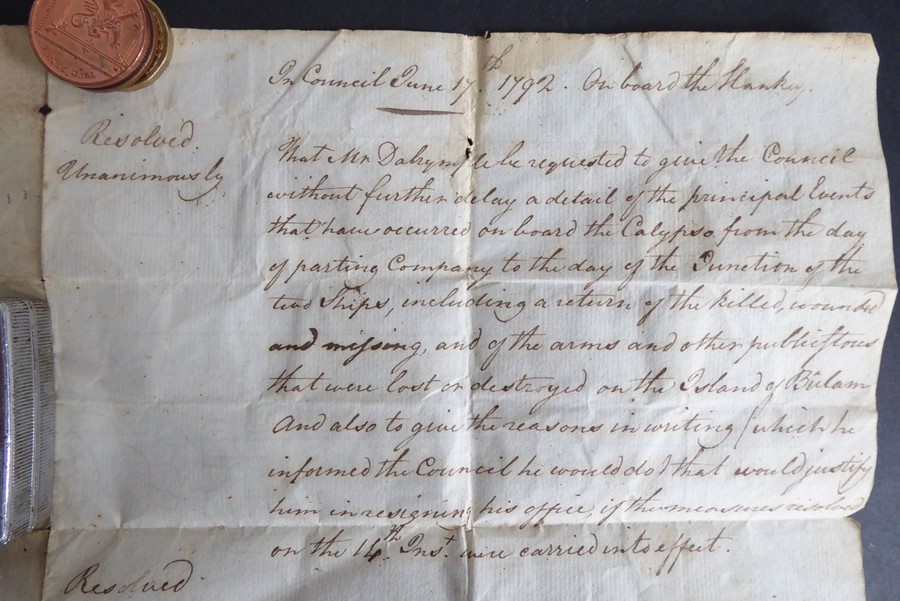 In Council June 17.th 1792. On board the Hankey.
Resolved.
Unanimously
That Mr. Dalrymple be requested to give the Council
without further delay a detail of the principal Events
that have occurred on board the Calypso, from the day
of parting Company to the day of the Junction of the
two Ships, including a return of the killed, wounded
and missing, and of the arms and other public stores
that were lost or destroyed on the Island of Bulam
And also to give the reasons in writing (which he
informed the Council he would do) that would justify
him in resigning his office, if the measures resolved
on the 14.th Inst. were carried into effect.
Resolved.